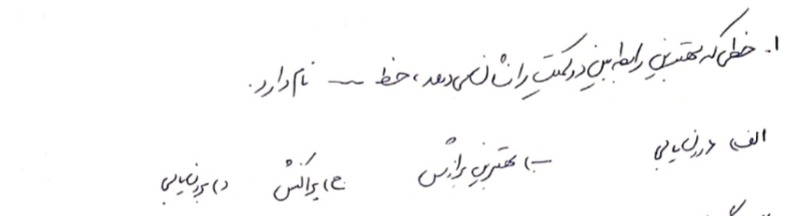 ۱. خطی که بهترین رابطه بین دو کمیت را نشان می دهد، خط ــ نام دارد.
الف) درون یابی ب) بهترین برازش ج) پراکنش د) برون یابی